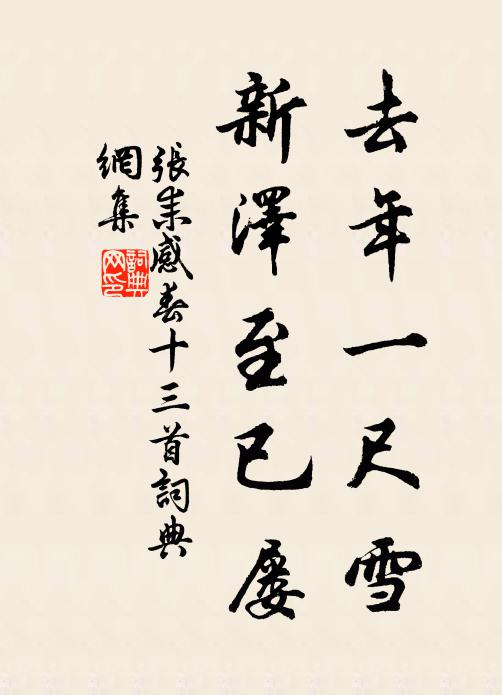 去年一尺雪
新澤至已屡
張耒感春十三首詞典
網集
詞典網印